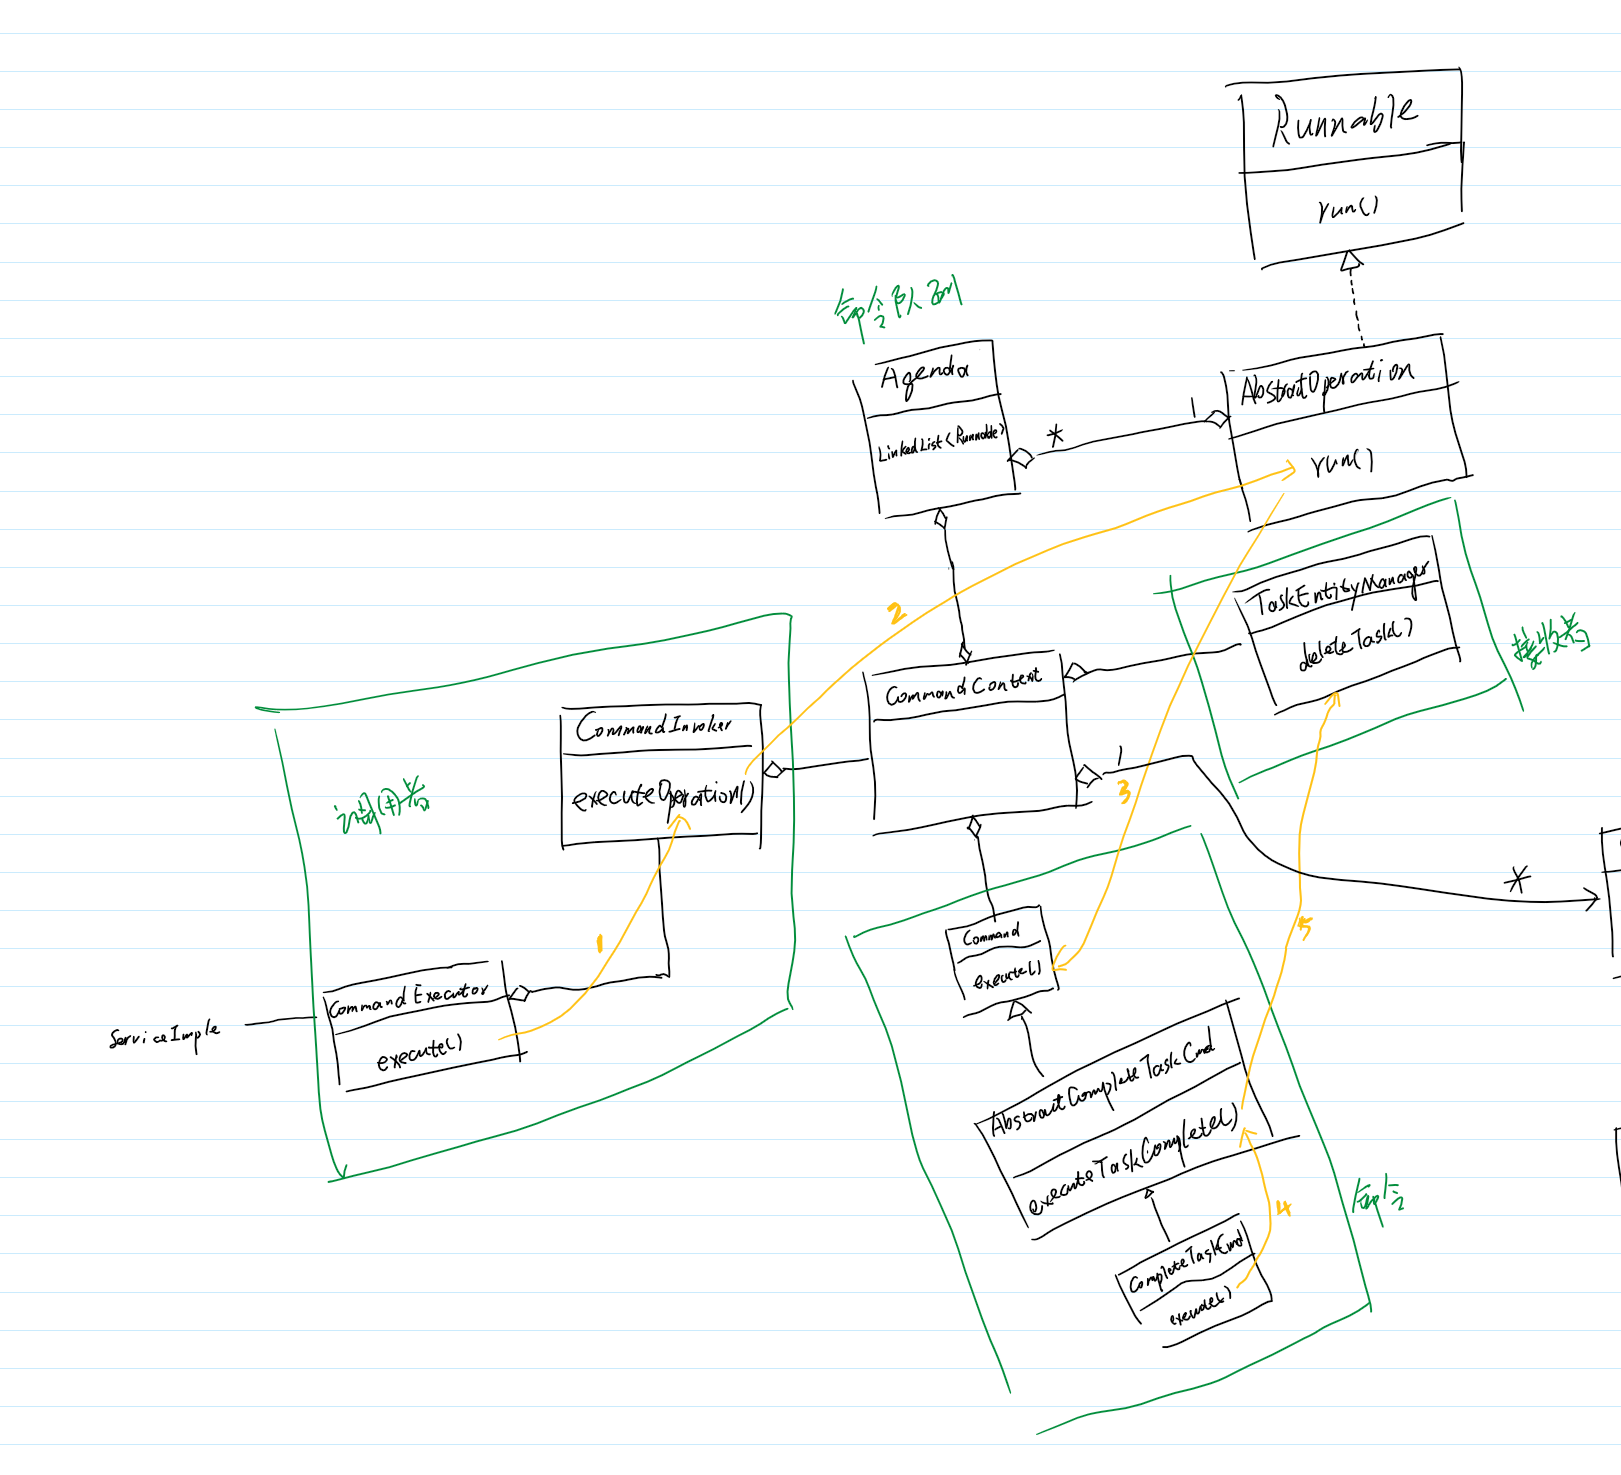 Runnable
run()
命令队列
Agenda
LinkedList<Runnable>
*
1
AbstractOperation
run()
TaskEntityManager
deleteTask()
接收者
2
CommandContext
CommandInvoker
executeOperation()
调用者
1
3
*
1
CommandExecutor
execute()
ServiceImple
Command
execute()
5
AbstractCompleteTaskCmd
executeTaskComplete()
4
命令
CompleteTaskCmd
execute()